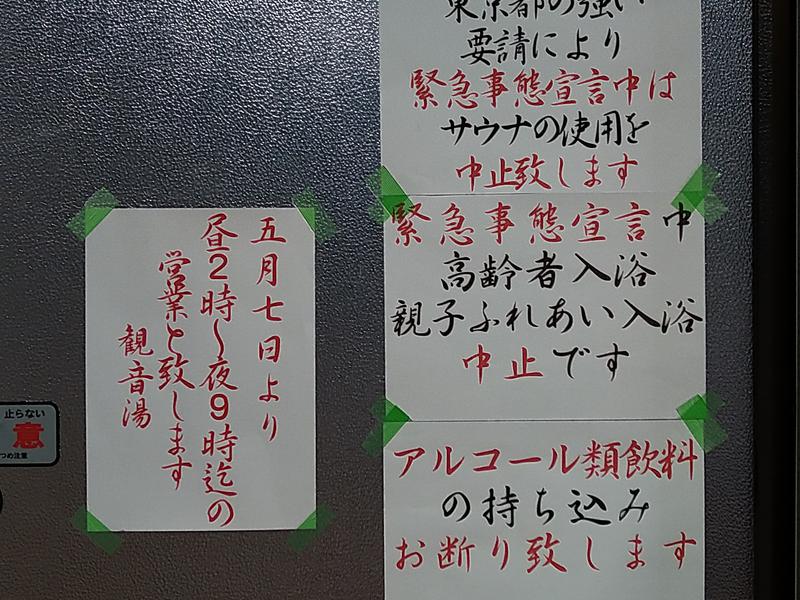 東京都の強い
要請により
緊急事態宣言中は
サウナの使用を
中止致します
緊急事態宣言中
高齢者入浴
親子ふれあい入浴
中止です
アルコール類飲料
の持ち込み
お断り致します
五月七日より
昼2時〜夜9時迄の
営業と致します
観音湯
止らない
意
つめ注意